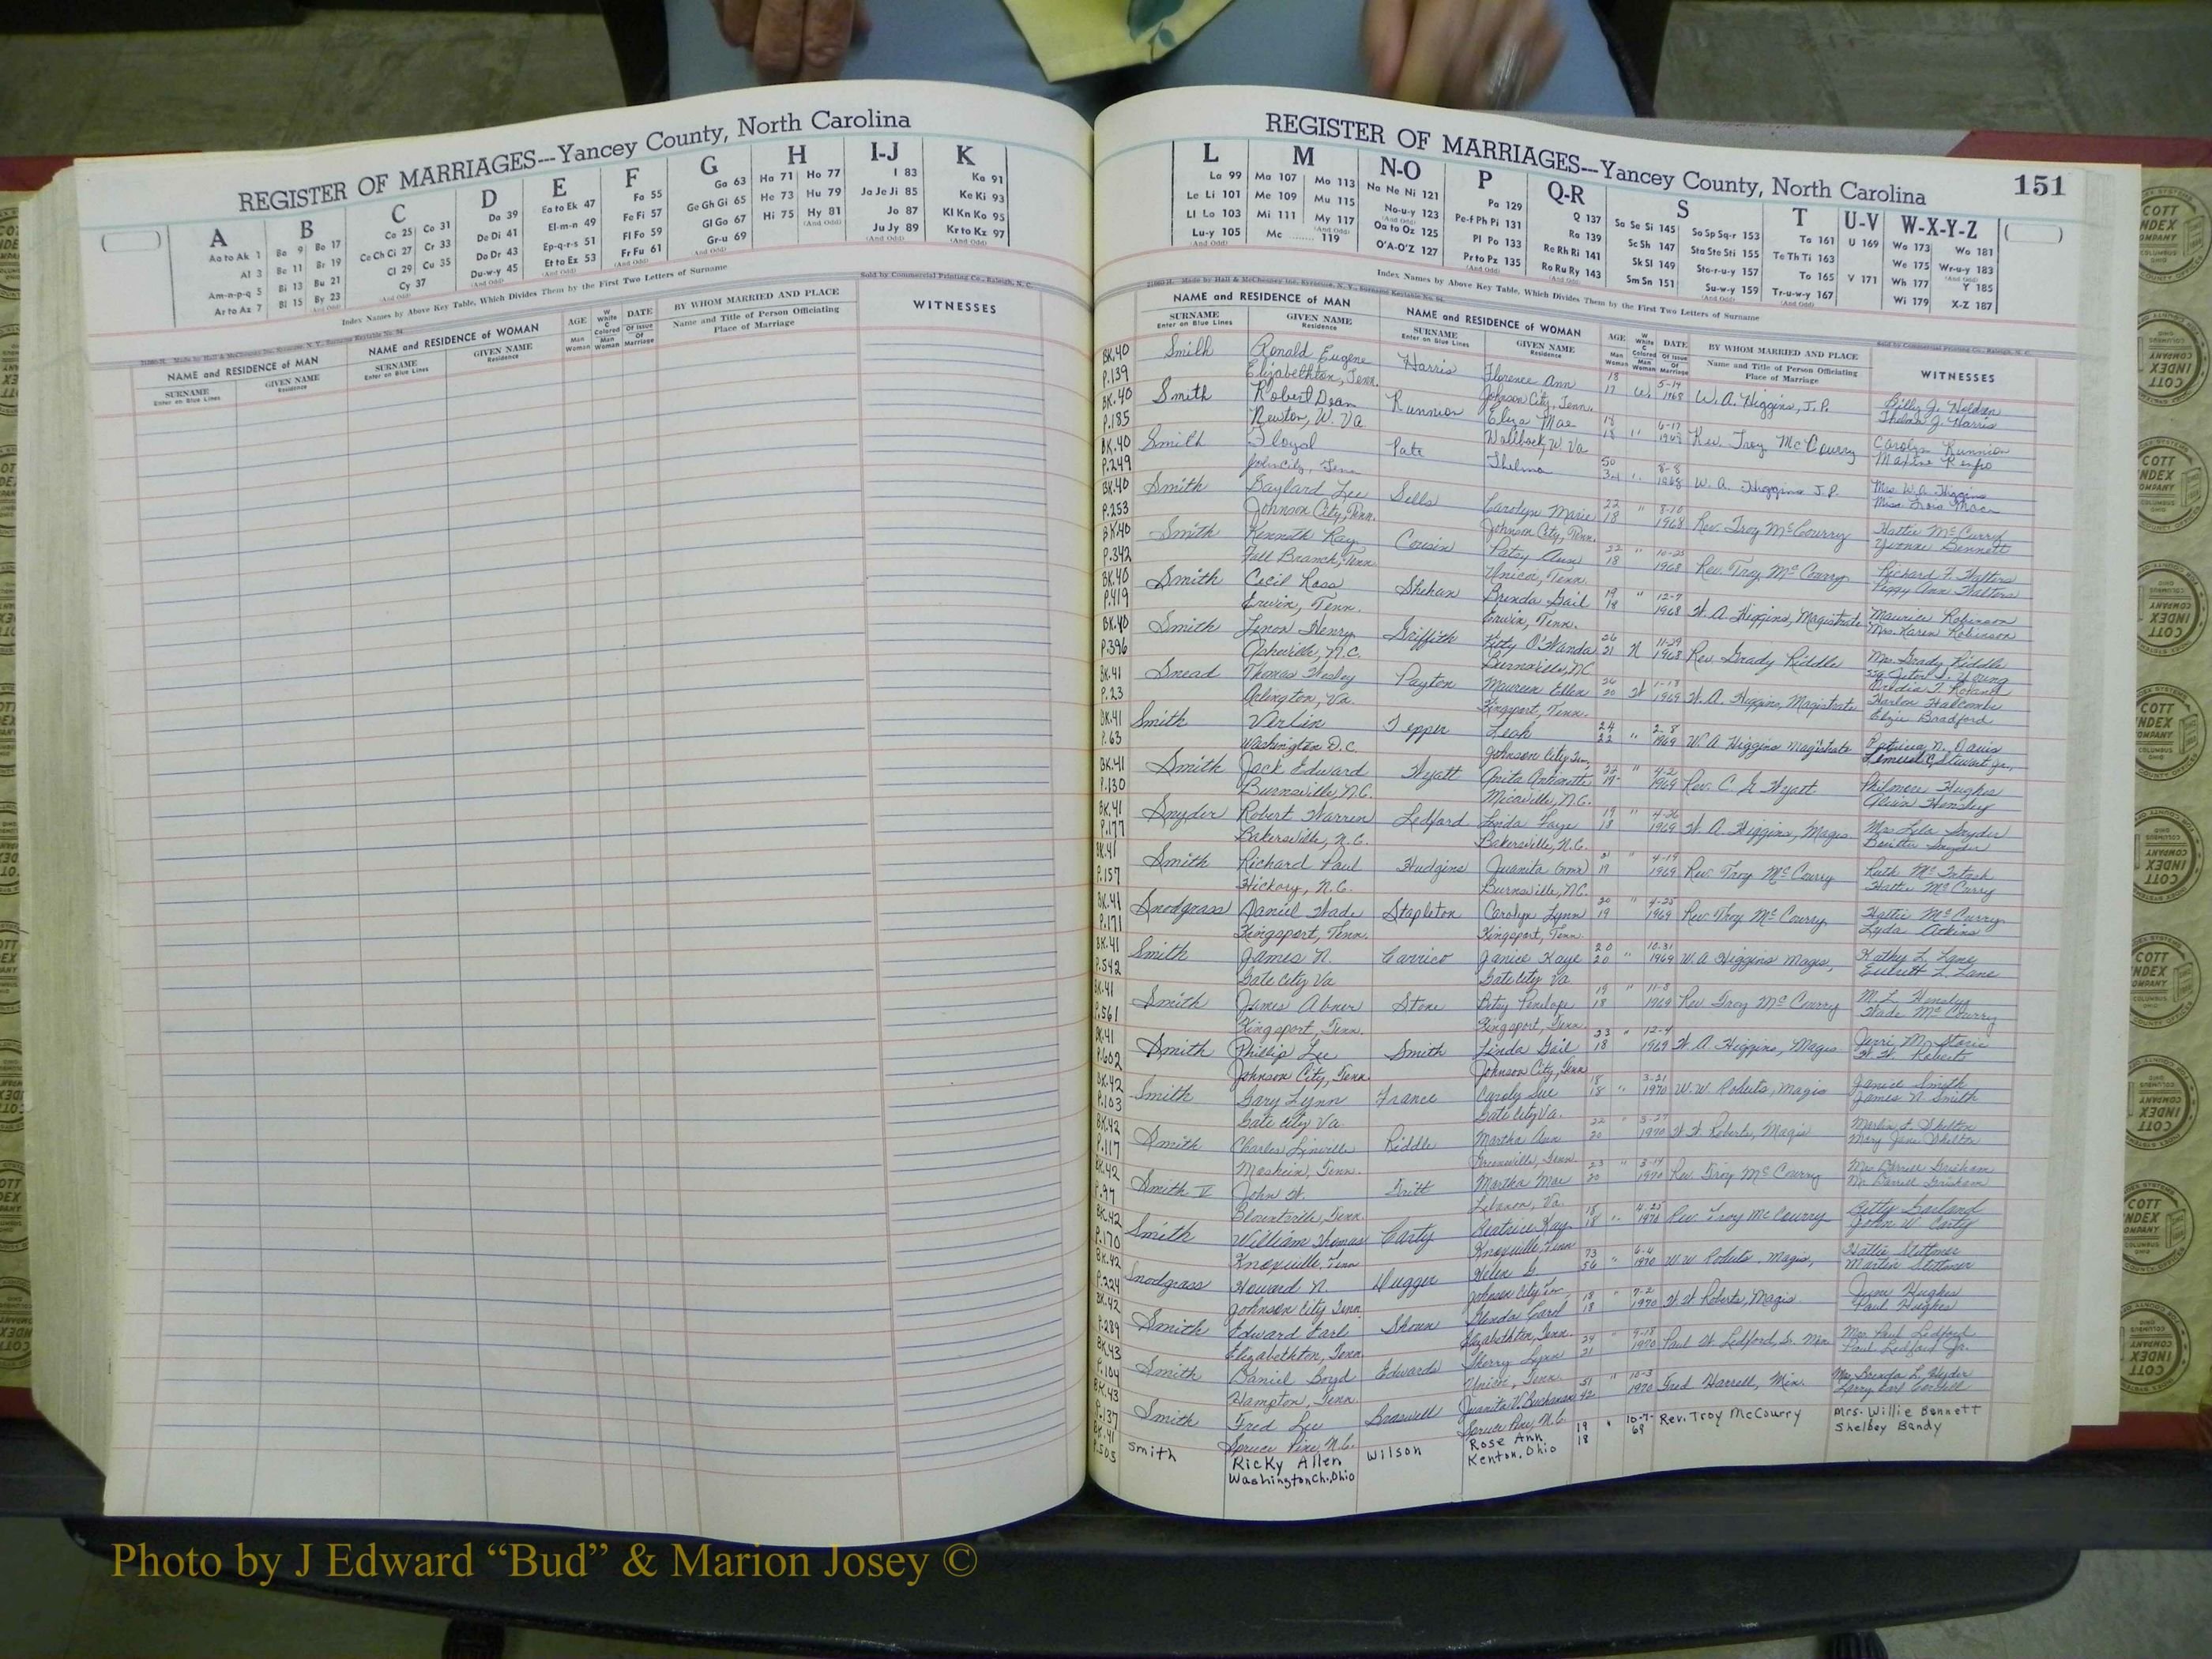 REGISTER OF MARRIAGES---Yancey County, North Carolina
A B C D E F G H I-J K
Aa to Ak 1 Ba 9 Bo 17 Ca 25 Co 31 Da 39 Ea to Ek 47 Fa 55 Ga 63 Ha 71 Ho 77 I 83 Ka 91
Al 3 Be 11 Br 19 Ce Ch Ci 27 Cr 33 De Di 41 El-m-n 49 Fe Fi 57 Ge Gh Gi 65 He 73 Hu 79 Ja Je Ji 85 Ke Ki 93
Am-n-p-q 5 Bi 13 Bu 21 Cl 29 Cu 35 Do Dr 43 Ep-q-r-s 51 Fl Fo 59 Gl Go 67 Hi 75 Hy 81 Jo 87 Kl Kn Ko 95
Ar to Az 7 Bl 15 By 23 Cy 37 Du-w-y 45 Et to Ez 53 Fr Fu 61 Gr-u 69 Ju Jy 89 Kr to Kz 97
Index Names by Above Key Table, Which Divides Them by the First Two Letters of Surname
Sold by Commercial Printing Co., Raleigh, N. C.
NAME and RESIDENCE of MAN NAME and RESIDENCE of WOMAN AGE DATE BY WHOM MARRIED AND PLACE WITNESSES
SURNAME Enter on Blue Lines GIVEN NAME Residence SURNAME Enter on Blue Lines GIVEN NAME Residence Man Woman W White C Colored Man Woman Of Issue Of Marriage Name and Title of Person Officiating Place of Marriage
REGISTER OF MARRIAGES---Yancey County, North Carolina 151
L M N-O P Q-R S T U-V W-X-Y-Z
La 99 Ma 107 Mo 113 Na Ne Ni 121 Pa 129 Q 137 Sa Se Si 145 So Sp Sq-r 153 Ta 161 U 169 Wa 173 Wo 181
Le Li 101 Me 109 Mu 115 No-u-y 123 Pe-f Ph Pi 131 Ra 139 Sc Sh 147 Sta Ste Sti 155 Te Th Ti 163 We 175 Wr-u-y 183
Ll Lo 103 Mi 111 My 117 Oa to Oz 125 Pl Po 133 Re Rh Ri 141 Sk Sl 149 Sto-r-u-y 157 To 165 V 171 Wh 177 Y 185
Lu-y 105 Mc 119 O'A-O'Z 127 Pr to Pz 135 Ro Ru Ry 143 Sm Sn 151 Su-w-y 159 Tr-u-w-y 167 Wi 179 X-Z 187
Index Names by Above Key Table, Which Divides Them by the First Two Letters of Surname
NAME and RESIDENCE of MAN NAME and RESIDENCE of WOMAN AGE DATE BY WHOM MARRIED AND PLACE WITNESSES
SURNAME Enter on Blue Lines GIVEN NAME Residence SURNAME Enter on Blue Lines GIVEN NAME Residence Man Woman White C Colored Man Woman Of Issue Of Marriage Name and Title of Person Officiating Place of Marriage
BK.40 Smith Ronald Eugene Harris Florence Ann 18 5-14 W. A. Higgins, J.P. Billy J. Holden
P.139 Elizabethton, Tenn. Johnson City, Tenn. 17 W. 1968 Thelma J. Harris
BK.40 Smith Robert Dean Runnion Eliza Mae 18 6-17 Rev. Troy McCourry Carolyn Runnion
P.185 Newton, W. Va Wallback, W. Va 18 " 1968
BK.40 Smith Floyd Pate Thelma 50 8-8 W. A. Higgins J.P. Mrs. W. A. Higgins
P.249 John City, Tenn " 1968
BK.40 Smith Gaylard Lee Sells Carolyn Marie 22 " 8-10 Rev. Troy McCourry Hattie McCurry
P.253 Johnson City, Tenn. Johnson City, Tenn. 18 1968 Yvonne Bennett
BK.40 Smith Kenneth Ray Cousin Patsy Ann 22 " 10-25 Rev. Troy McCourry Richard F. Walters
P.342 Fall Branch, Tenn Unicoi, Tenn. 18 1968 Peggy Ann Walters
BK.40 Smith Cecil Ross Shehan Brenda Gail 19 " 12-7 W. A. Higgins, Magistrate Maurice Robinson
P.419 Erwin, Tenn. Erwin, Tenn. 18 1968 Mrs. Karen Robinson
BK.40 Smith Lenox Henry Griffith Kitty O'Wanda 26 N 11-29 Rev. Grady Riddle Mrs. Grady Riddle
P.396 Asheville, N.C. Burnsville, NC 21 1968
BK.41 Snead Thomas Wesley Payton Maureen Ellen 26 W 1-18 W. A. Higgins, Magistrate Harlon Halcombe
P.23 Arlington, Va. Kingsport, Tenn. 20 1969 Elzie Bradford
BK.41 Smith Verlin Tepper Leah 24 " 2-8 W. A Higgins Magistrate Patricia N. Davis
P.63 Washington D.C. Johnson City Tn, 22 1969 Lemuel C. Stewart Jr.,
BK.41 Smith Jack Edward Hyatt Anita Antionette 22 " 4-2 Rev. C. G Hyatt Philmore Hughes
P.130 Burnsville, N.C. Micaville, N.C. 19 1969 Alicia Hensley
BK.41 Snyder Robert Warren Ledford Linda Faye 19 " 4-26 W. A. Higgins, Magis Mrs Lela Snyder
P.177 Bakersville, N.C. Bakersville, N.C. 18 1969 Snyder
BK.41 Smith Richard Paul Hudgins Juanita (nmn) 21 " 4-19 Rev. Troy McCurry Ruth McIntosh
P.157 Hickory, N.C. Burnsville, NC. 19 1969 Hattie McCurry
BK.41 Snodgrass Daniel Wade Stapleton Carolyn Lynn 20 " 4-25 Rev. Troy McCourry Hattie McCurry
P.171 Kingsport, Tenn. Kingsport, Tenn. 19 1969 Lyda Atkins
BK.41 Smith James N. Carrico Janice Kaye 20 " 10-31 W. A Higgins Magis, Kathy L Lane
P.542 Gate City Va Gate City Va 20 1969 Everett L Lane
BK.41 Smith James Abner Stone Betsy Penelope 19 " 11-8 Rev Troy McCourry M. L. Hensley
P.561 Kingsport, Tenn. Kingsport, Tenn. 18 1969 Wade McCourry
BK.41 Smith Phillip Lee Smith Linda Gail 23 " 12-4 W. A Higgins, Magis Jerri M. Storie
P.602 Johnson City, Tenn. Johnson City, Tenn 18 1969 W. W. Roberts
BK.42 Smith Gary Lynn France Caroly Sue 18 " 3-21 W. W. Roberts, Magis Janice Smith
P.103 Gate City Va. Gate City Va. 18 1970 James N. Smith
BK.42 Smith Charles Linville Riddle Martha Ann 22 " 3-27 W. W. Roberts, Magis Shelton
P.117 Tenn. Greenville, Tenn. 20 1970 Mary Jane Shelton
BK.42 Smith V John W. Tritt Martha Mae 23 " 3-14 Rev. Troy McCourry Mrs Darrell Grisham
P.97 Blountville, Tenn. Lebanon, Va. 20 1970 Mr Darrell Grisham
BK.42 Smith William Thomas Carty Beatrice Kay 18 " 4-25 Rev. Troy McCourry Betty Garland
P.170 Knoxville, Tenn Knoxville, Tenn 18 1970 John W. Carty
BK.42 Snodgrass Howard N. Dugger Helen G. 73 " 6-4 W W Roberts, Magis,
P.224 Johnson City Tenn Johnson City Tn. 56 1970
BK.42 Smith Edward Earl Shoun Glenda Carol 18 " 7-2 W. W Roberts, Magis June Hughes
P.289 Elizabethton, Tenn Elizabethton, Tenn. 18 1970 Paul Hughes
BK.43 Smith Daniel Boyd Edwards Sherry Lynn 24 " 9-18 Paul W. Ledford, Sr. Min Mrs. Paul Ledford
P.104 Hampton, Tenn. Unicoi, Tenn. 21 1970 Paul Ledford Jr.
BK.43 Smith Fred Lee Braswell Juanita V. Buchanan 51 " 10-3 Fred Harrell, Min. Mrs Brenda L. Hyder
P.137 Spruce Pine, N.C. Spruce Pine, N.C. 42 1970
BK.41 Smith Ricky Allen Wilson Rose Ann 19 " 10-7- Rev. Troy McCourry Mrs. Willie Bennett
P.505 Washington Ch., Ohio Kenton, Ohio 18 69 Shelbey Bandy
Photo by J Edward “Bud” & Marion Josey ©